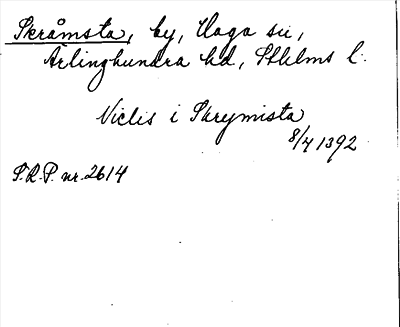 Skråmsta, by, Haga sn,
Ärlinghundra hd, Sthlms l.
Niclis i Skrymista
8/4 1392
S.R.P. nr. 2614